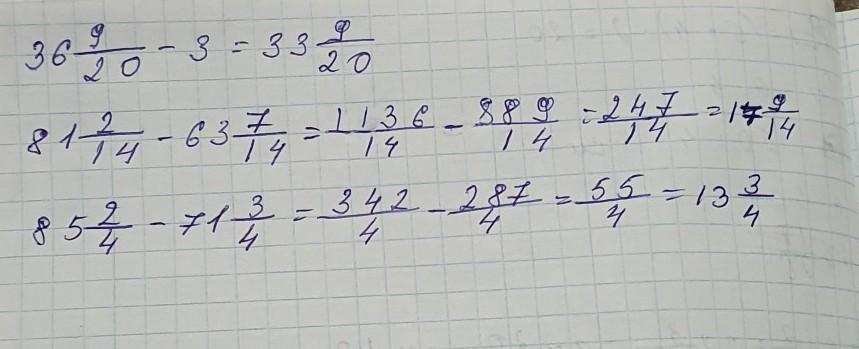 36 9/20 - 3 = 33 9/20
81 2/14 - 63 7/14 = 1136/14 - 889/14 = 247/14 = 17 9/14
85 2/4 - 71 3/4 = 342/4 - 287/4 = 55/4 = 13 3/4